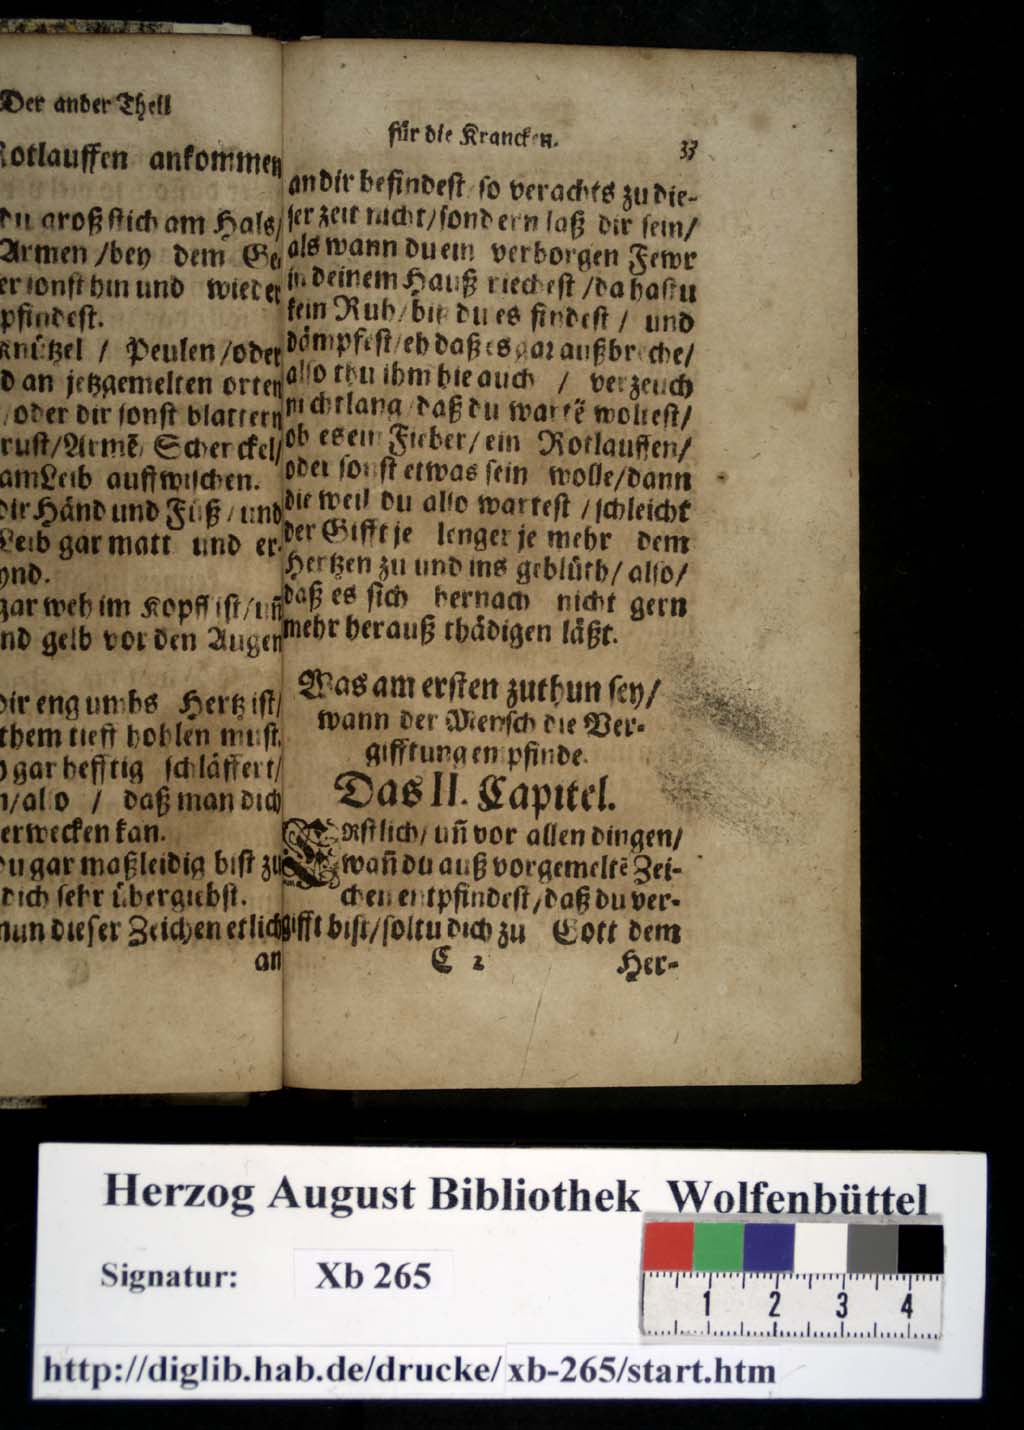 Der ander Theil
Rotlauffen ankommen
du groß stich am Hals/
Armen /bey dem Ge
er sonst hin und wieder
pfindest.
knützel / Peulen /oder
d an jetzgemelten orten
/ oder dir sonst blattern
rust/Armē/ Schenckel/
am Leib auffwischen.
dir Händ und Füß / und
Leib gar matt und er-
ynd.
gar weh im Kopff ist/uñ
nd gelb vor den Augen
dir eng umbs Hertz ist/
them tieff hohlen must.
gar hefftig schläffert/
n/also / daß man dich
erwecken kan.
du gar maßleidig bist zu
dich sehr übergiebst.
nun dieser Zeichen etlich
an
für die Krancken. 33
an dir befindest so verachts zu die-
ser zeit nicht/sondern laß dir sein/
als wann du ein verborgen Fewr
in deinem Hauß riechest /da hastu
kein Ruh/biß du es findest / und
dömpfest/eh daß es gar außbreche/
also thu ihm hie auch / verzeuch
nicht lang daß du wartē woltest/
ob es ein Fieber/ein Rotlauffen/
oder sonst etwas sein wolle/dann
die weil du also wartest /schleicht
der Gifft je lenger je mehr dem
Hertzen zu und ins geblüth/ also/
daß es sich hernach nicht gern
mehr herauß thädigen läßt.
Was am ersten zuthun sey/
wann der Mensch die Ver-
gifftung enpfinde.
Das II. Capitel.
Erstlich/ uñ vor allen dingen/
wañ du auß vorgemeltē Zei-
chen entpfindest/daß du ver-
gifft bist/soltu dich zu Gott dem
C 2 Her-
Herzog August Bibliothek Wolfenbüttel
Signatur: Xb 265
1 2 3 4
http://diglib.hab.de/drucke/xb-265/start.htm